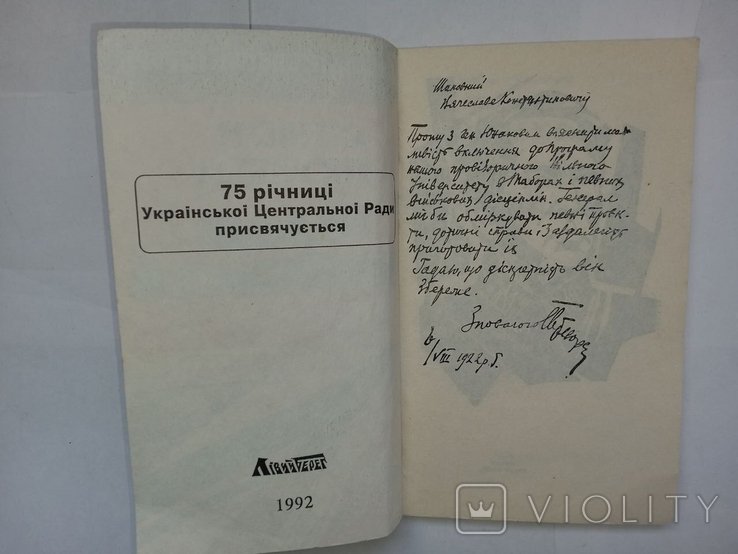 75 річниці
Української Центральної Ради
присвячується
Лівий берег
1992
Шановний
Вячеславе Константиновичу
Прошу з Ген. Юнаковим вияснити мож
ливість включення до програму
нашого провізоричного Вільного
Університету в Таборах і певних
військових дісціплін. Генерал
міг би обміркувати певні проек
ти, дотичні справи і
приготовити їх
Гадаю, що діскретність він
збереже.
З повагою
6/VIII 1922 р Б.
VIOLITY